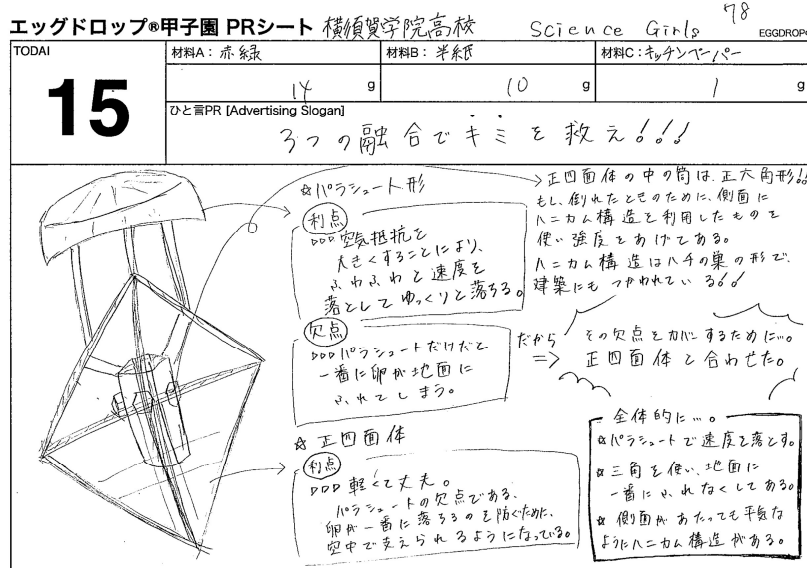 エッグドロップ®甲子園 PRシート 横須賀学院高校 Science Girls 78
EGGDROP
TODAI
15
材料A: 赤緑
14 g
材料B: 半紙
10 g
材料C: キッチンペーパー
1 g
ひと言PR [Advertising Slogan]
3つの融合でキミを救え!!!
☆パラシュート形
利点
▷▷▷空気抵抗を
大きくすることにより、
ふわふわと速度を
落としてゆっくりと落ちる。
欠点
▷▷▷パラシュートだけだと
一番に卵が地面に
ふれてしまう。
☆正四面体
利点
▷▷▷軽くて丈夫。
パラシュートの欠点である、
卵が一番に落ちるのを防ぐために、
空中で支えられるようになっている。
正四面体の中の筒は正六角形!!
もし、倒れたときのために、側面に
ハニカム構造を利用したものを
使い強度をあげてある。
ハニカム構造はハチの巣の形で、
建築にもつかわれている!!
だから
⇒
その欠点をカバーするために…。
正四面体と合わせた。
全体的に…。
☆パラシュートで速度を落とす。
☆三角を使い、地面に
一番にふれなくしてある。
☆側面があたっても平気な
ようにハニカム構造がある。